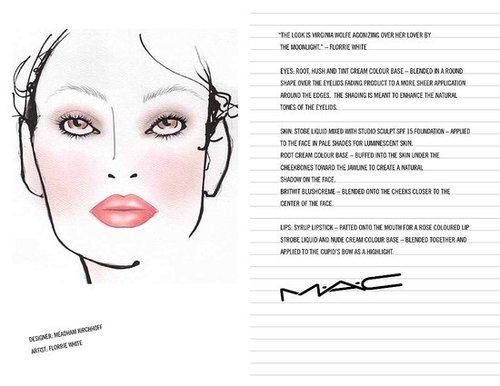 "THE LOOK IS VIRGINIA WOLFE AGONIZING OVER HER LOVER BY
THE MOONLIGHT." – FLORRIE WHITE
EYES: ROOT, HUSH AND TINT CREAM COLOUR BASE – BLENDED IN A ROUND
SHAPE OVER THE EYELIDS FADING PRODUCT TO A MORE SHEER APPLICATION
AROUND THE EDGES. THE SHADING IS MEANT TO ENHANCE THE NATURAL
TONES OF THE EYELIDS.
SKIN: STOBE LIQUID MIXED WITH STUDIO SCULPT SPF 15 FOUNDATION – APPLIED
TO THE FACE IN PALE SHADES FOR LUMINESCENT SKIN.
ROOT CREAM COLOUR BASE – BUFFED INTO THE SKIN UNDER THE
CHEEKBONES TOWARD THE JAWLINE TO CREATE A NATURAL
SHADOW ON THE FACE.
BRITHIT BLUSHCREME – BLENDED ONTO THE CHEEKS CLOSER TO THE
CENTER OF THE FACE.
LIPS: SYRUP LIPSTICK – PATTED ONTO THE MOUTH FOR A ROSE COLOURED LIP
STROBE LIQUID AND NUDE CREAM COLOUR BASE – BLENDED TOGETHER AND
APPLIED TO THE CUPID'S BOW AS A HIGHLIGHT.
M·A·C
DESIGNER: MEADHAM KIRCHHOFF
ARTIST: FLORRIE WHITE